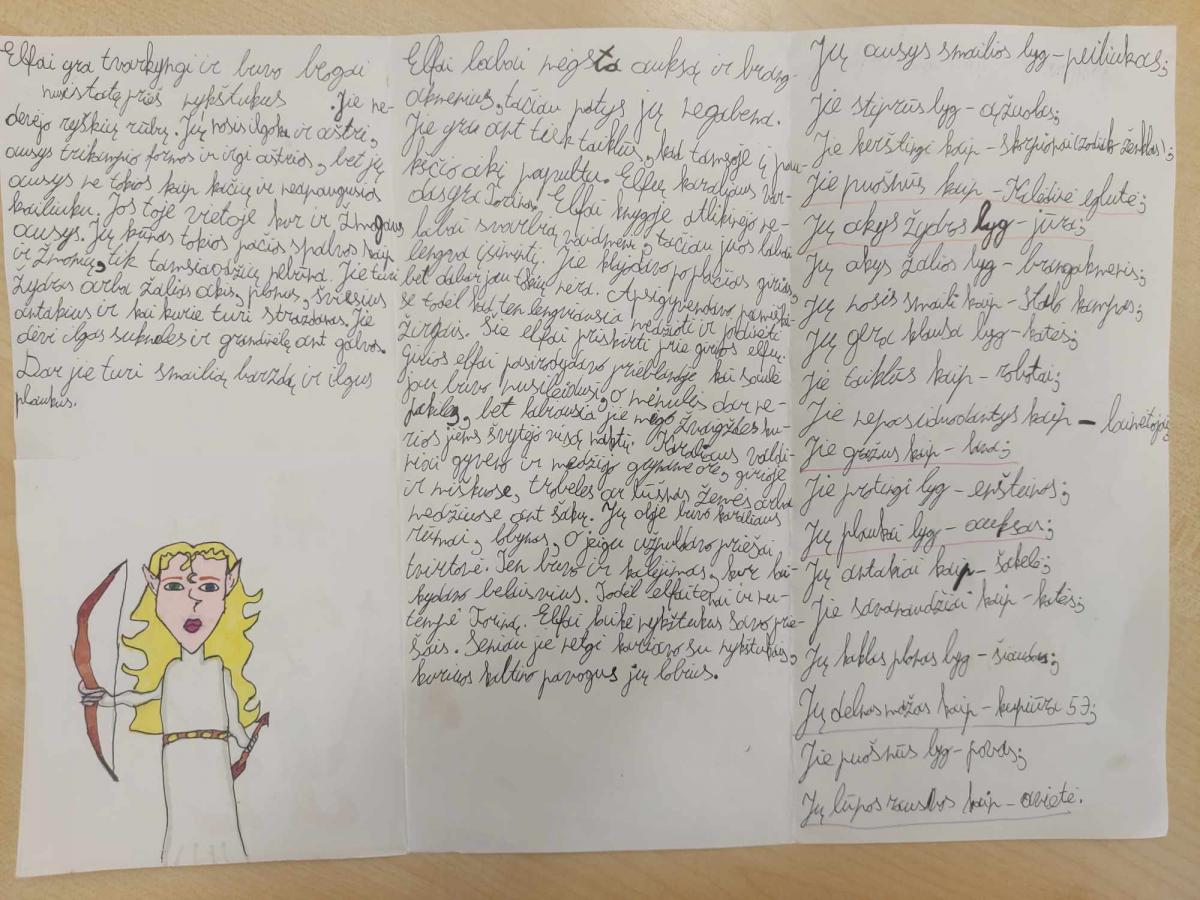 Elfai yra tvarkyngi ir buvo blogai
nusistatę prieš nykštukus. Jie ne-
dėvėjo ryškių rūbų. Jų nosis ilgoka ir aštri,
ausys trikampio formos ir irgi aštrios, bet jų
ausys ne tokios kaip kačių ir neapaugusios
kailiuku. Jos toje vietoje kur ir žmogaus
ausys. Jų kūnas tokios pačios spalvos kaip
ir žmonių, tik tamsiaodžių nebūna. Jie turi
žydras arba žalias akis, plonus, šviesius
antakius ir kai kurie turi strazdanas. Jie
dėvi ilgas sukneles ir grandinėlę ant galvos.
Dar jie turi smailią barzdą ir ilgus
plaukus.
Elfai labai mėgsta auksą ir brang-
akmenius, tačiau patys jų negabena.
Jie yra ant tiek taiklūs, kad tamsoje į pau-
kščio akį pataikytų. Elfų karaliaus var-
das yra Torinas. Elfai knygoje atlikinėjo ne-
labai svarbią vaidmenį, tačiau juos labai
lengva įsiminti. Jie klajodavo po plačias girias,
bet dabar jau tokių nėra. Apsigyvendavo pamiškė-
se todėl kad ten lengviausia medžioti ir jodinėti
žirgais. Šie elfai priskirti prie girios elfų.
Girios elfai pasirodydavo prieblandoje kai saulė
jau buvo nusileidusi, o mėnulis dar ne-
pakilęs, bet labiausia jie mėgo žvaigždes ku-
rios jiems švytėjo visą naktį. Karaliaus valdi-
niai gyveno ir medžiojo gryname ore, girioje
ir miškuose, trobelės ar lūšnos žemės arba
medžiuose ant šakų. Jų oloje buvo karaliaus
rūmai, lobynas, o jeigu užpuldavo priešai
tvirtovė. Ten buvo ir kalėjimas, kur lai-
kydavo belaisvius. Todėl elfai tenai ir nu-
tempė Toriną. Elfai laikė nykštukus savo prie-
šais. Seniau jie netgi kariavo su nykštukais,
kuriuos kaltino pavogus jų lobius.
Jų ausys smailios lyg - peiliukas;
Jie stiprūs lyg - ąžuolas;
Jie kerštingi kaip - skorpionai (zodiako ženklas);
Jie puošnūs kaip - Kalėdinė eglutė;
Jų akys žydros lyg - jūra;
Jų akys žalios lyg - brangakmenis;
Jų nosis smaili kaip - stalo kampas;
Jų gera klausa lyg - katės;
Jie taiklūs kaip - robotai;
Jie nepasiduodantys kaip - laimėtojai;
Jie gražus kaip -
Jie protingi lyg - enšteinas;
Jų plaukai lyg - auksas;
Jų antakiai kaip - šakelė;
Jie savanaudžiai kaip - katės;
Jų kaklas plonas lyg - šiaudas;
Jų delnas mažas kaip - kupiūra 5 Э;
Jie puošnūs lyg - povas;
Jų lūpos rausvos kaip - avietė.